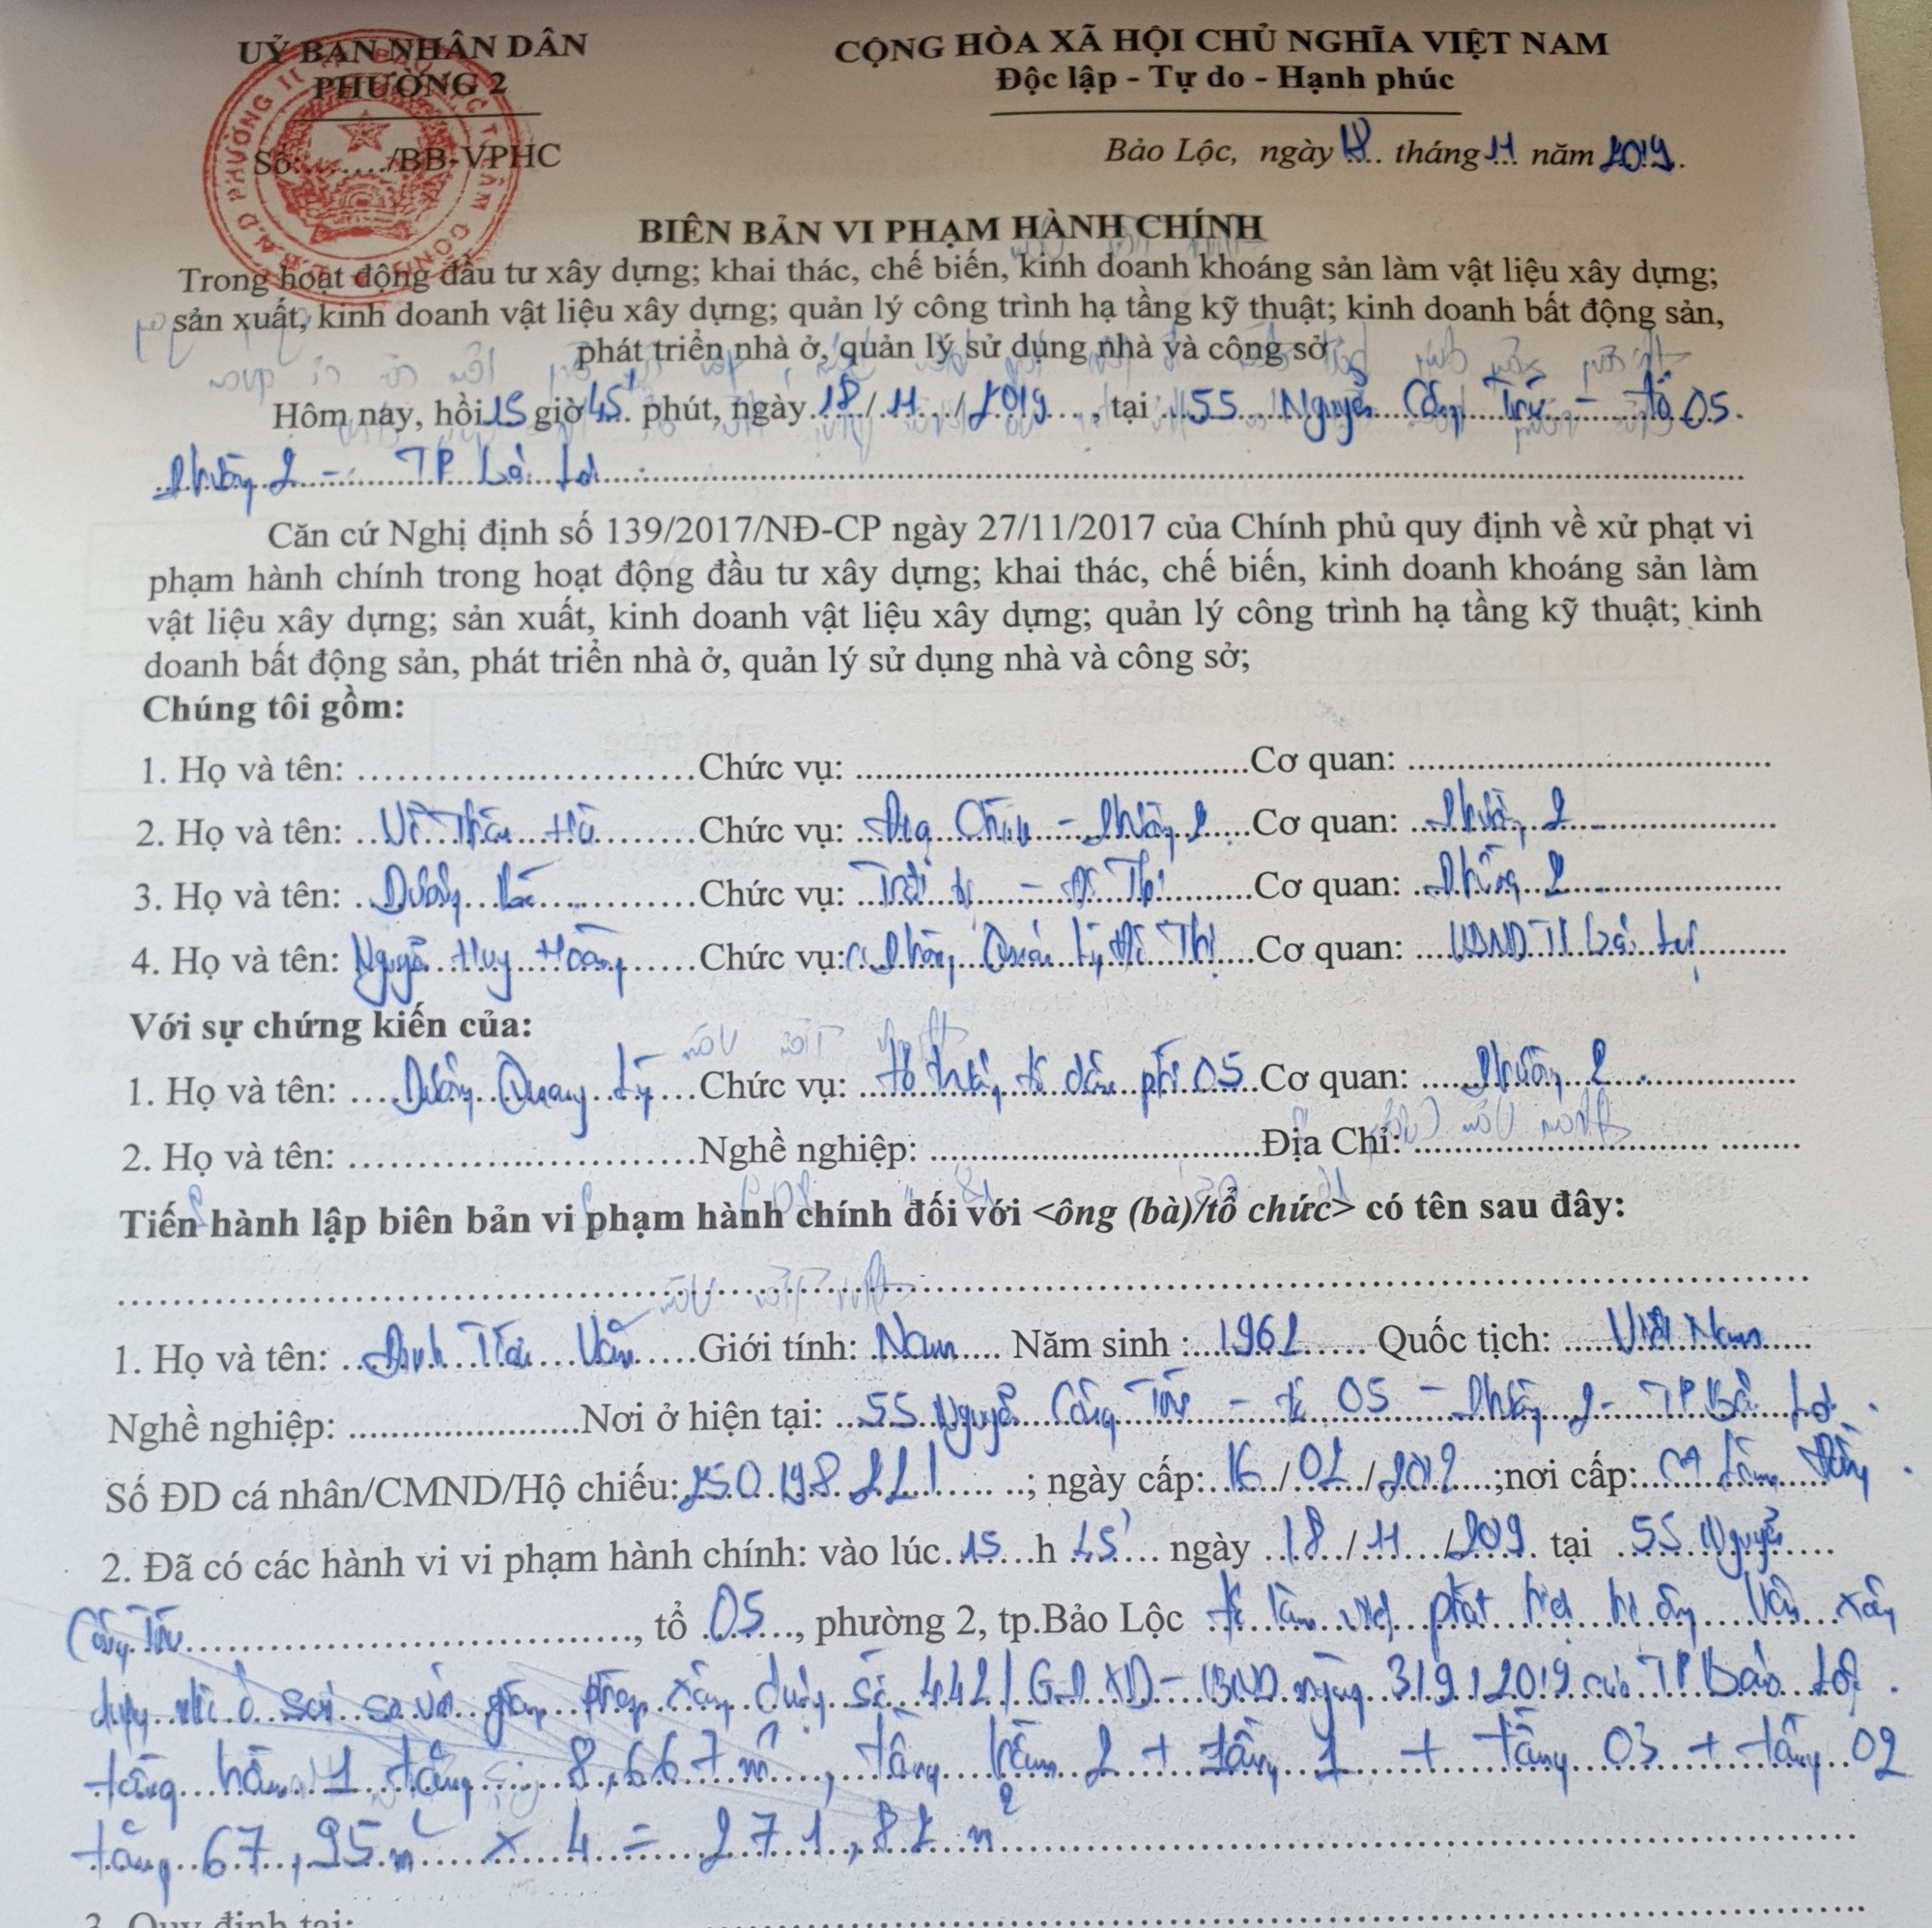 UỶ BAN NHÂN DÂN
PHƯỜNG 2
CỘNG HÒA XÃ HỘI CHỦ NGHĨA VIỆT NAM
Độc lập - Tự do - Hạnh phúc
Số:......../BB-VPHC
Bảo Lộc, ngày 18 tháng 11 năm 2019.
BIÊN BẢN VI PHẠM HÀNH CHÍNH
Trong hoạt động đầu tư xây dựng; khai thác, chế biến, kinh doanh khoáng sản làm vật liệu xây dựng;
sản xuất, kinh doanh vật liệu xây dựng; quản lý công trình hạ tầng kỹ thuật; kinh doanh bất động sản,
phát triển nhà ở, quản lý sử dụng nhà và công sở
Hôm nay, hồi 15 giờ 45' phút, ngày 18/11/2019, tại 55 Nguyễn Công Trứ - tổ 05.
Phường 2 - TP Bảo Lộc
Căn cứ Nghị định số 139/2017/NĐ-CP ngày 27/11/2017 của Chính phủ quy định về xử phạt vi
phạm hành chính trong hoạt động đầu tư xây dựng; khai thác, chế biến, kinh doanh khoáng sản làm
vật liệu xây dựng; sản xuất, kinh doanh vật liệu xây dựng; quản lý công trình hạ tầng kỹ thuật; kinh
doanh bất động sản, phát triển nhà ở, quản lý sử dụng nhà và công sở;
Chúng tôi gồm:
1. Họ và tên: ........................Chức vụ: ........................Cơ quan: ........................
2. Họ và tên: Hà Chức vụ: Địa Chính - Phường 2 Cơ quan: Phường 2
3. Họ và tên: Dương Chức vụ: Trật tự - Đô Thị Cơ quan: Phường 2
4. Họ và tên: Nguyễn Huy Hoàng Chức vụ: Phòng Quản Lý Đô Thị Cơ quan: UBND TP Bảo Lộc
Với sự chứng kiến của:
1. Họ và tên: Dương Quang Lý Chức vụ: tổ trưởng tổ dân phố 05 Cơ quan: Phường 2
2. Họ và tên: ........................Nghề nghiệp: ........................Địa Chỉ: ........................
Tiến hành lập biên bản vi phạm hành chính đối với <ông (bà)/tổ chức> có tên sau đây:
1. Họ và tên: Đinh Tiến Vân Giới tính: Nam Năm sinh : 1962 Quốc tịch: Việt Nam
Nghề nghiệp: ....................Nơi ở hiện tại: 55 Nguyễn Công Trứ - tổ 05 - Phường 2 - TP Bảo Lộc.
Số ĐD cá nhân/CMND/Hộ chiếu: 250.198 221 ; ngày cấp: 16/02/2012 ;nơi cấp: CA Lâm Đồng.
2. Đã có các hành vi vi phạm hành chính: vào lúc 15 h 45' ngày 18/11/2019 tại 55 Nguyễn
Công Trứ, tổ 05, phường 2, tp.Bảo Lộc tổ làm việc phát hiện ông Vân xây
dựng nhà ở sai so với giấy phép xây dựng số 442/GPXD-UBND ngày 3/9/2019 của TP Bảo Lộc.
tầng hầm 1 tăng : 8,667 m², tầng hầm 2 + tầng 1 + tầng 03 + tầng 02
tăng 67,95 m² x 4 = 271,82 m²
3. Quy định tại: